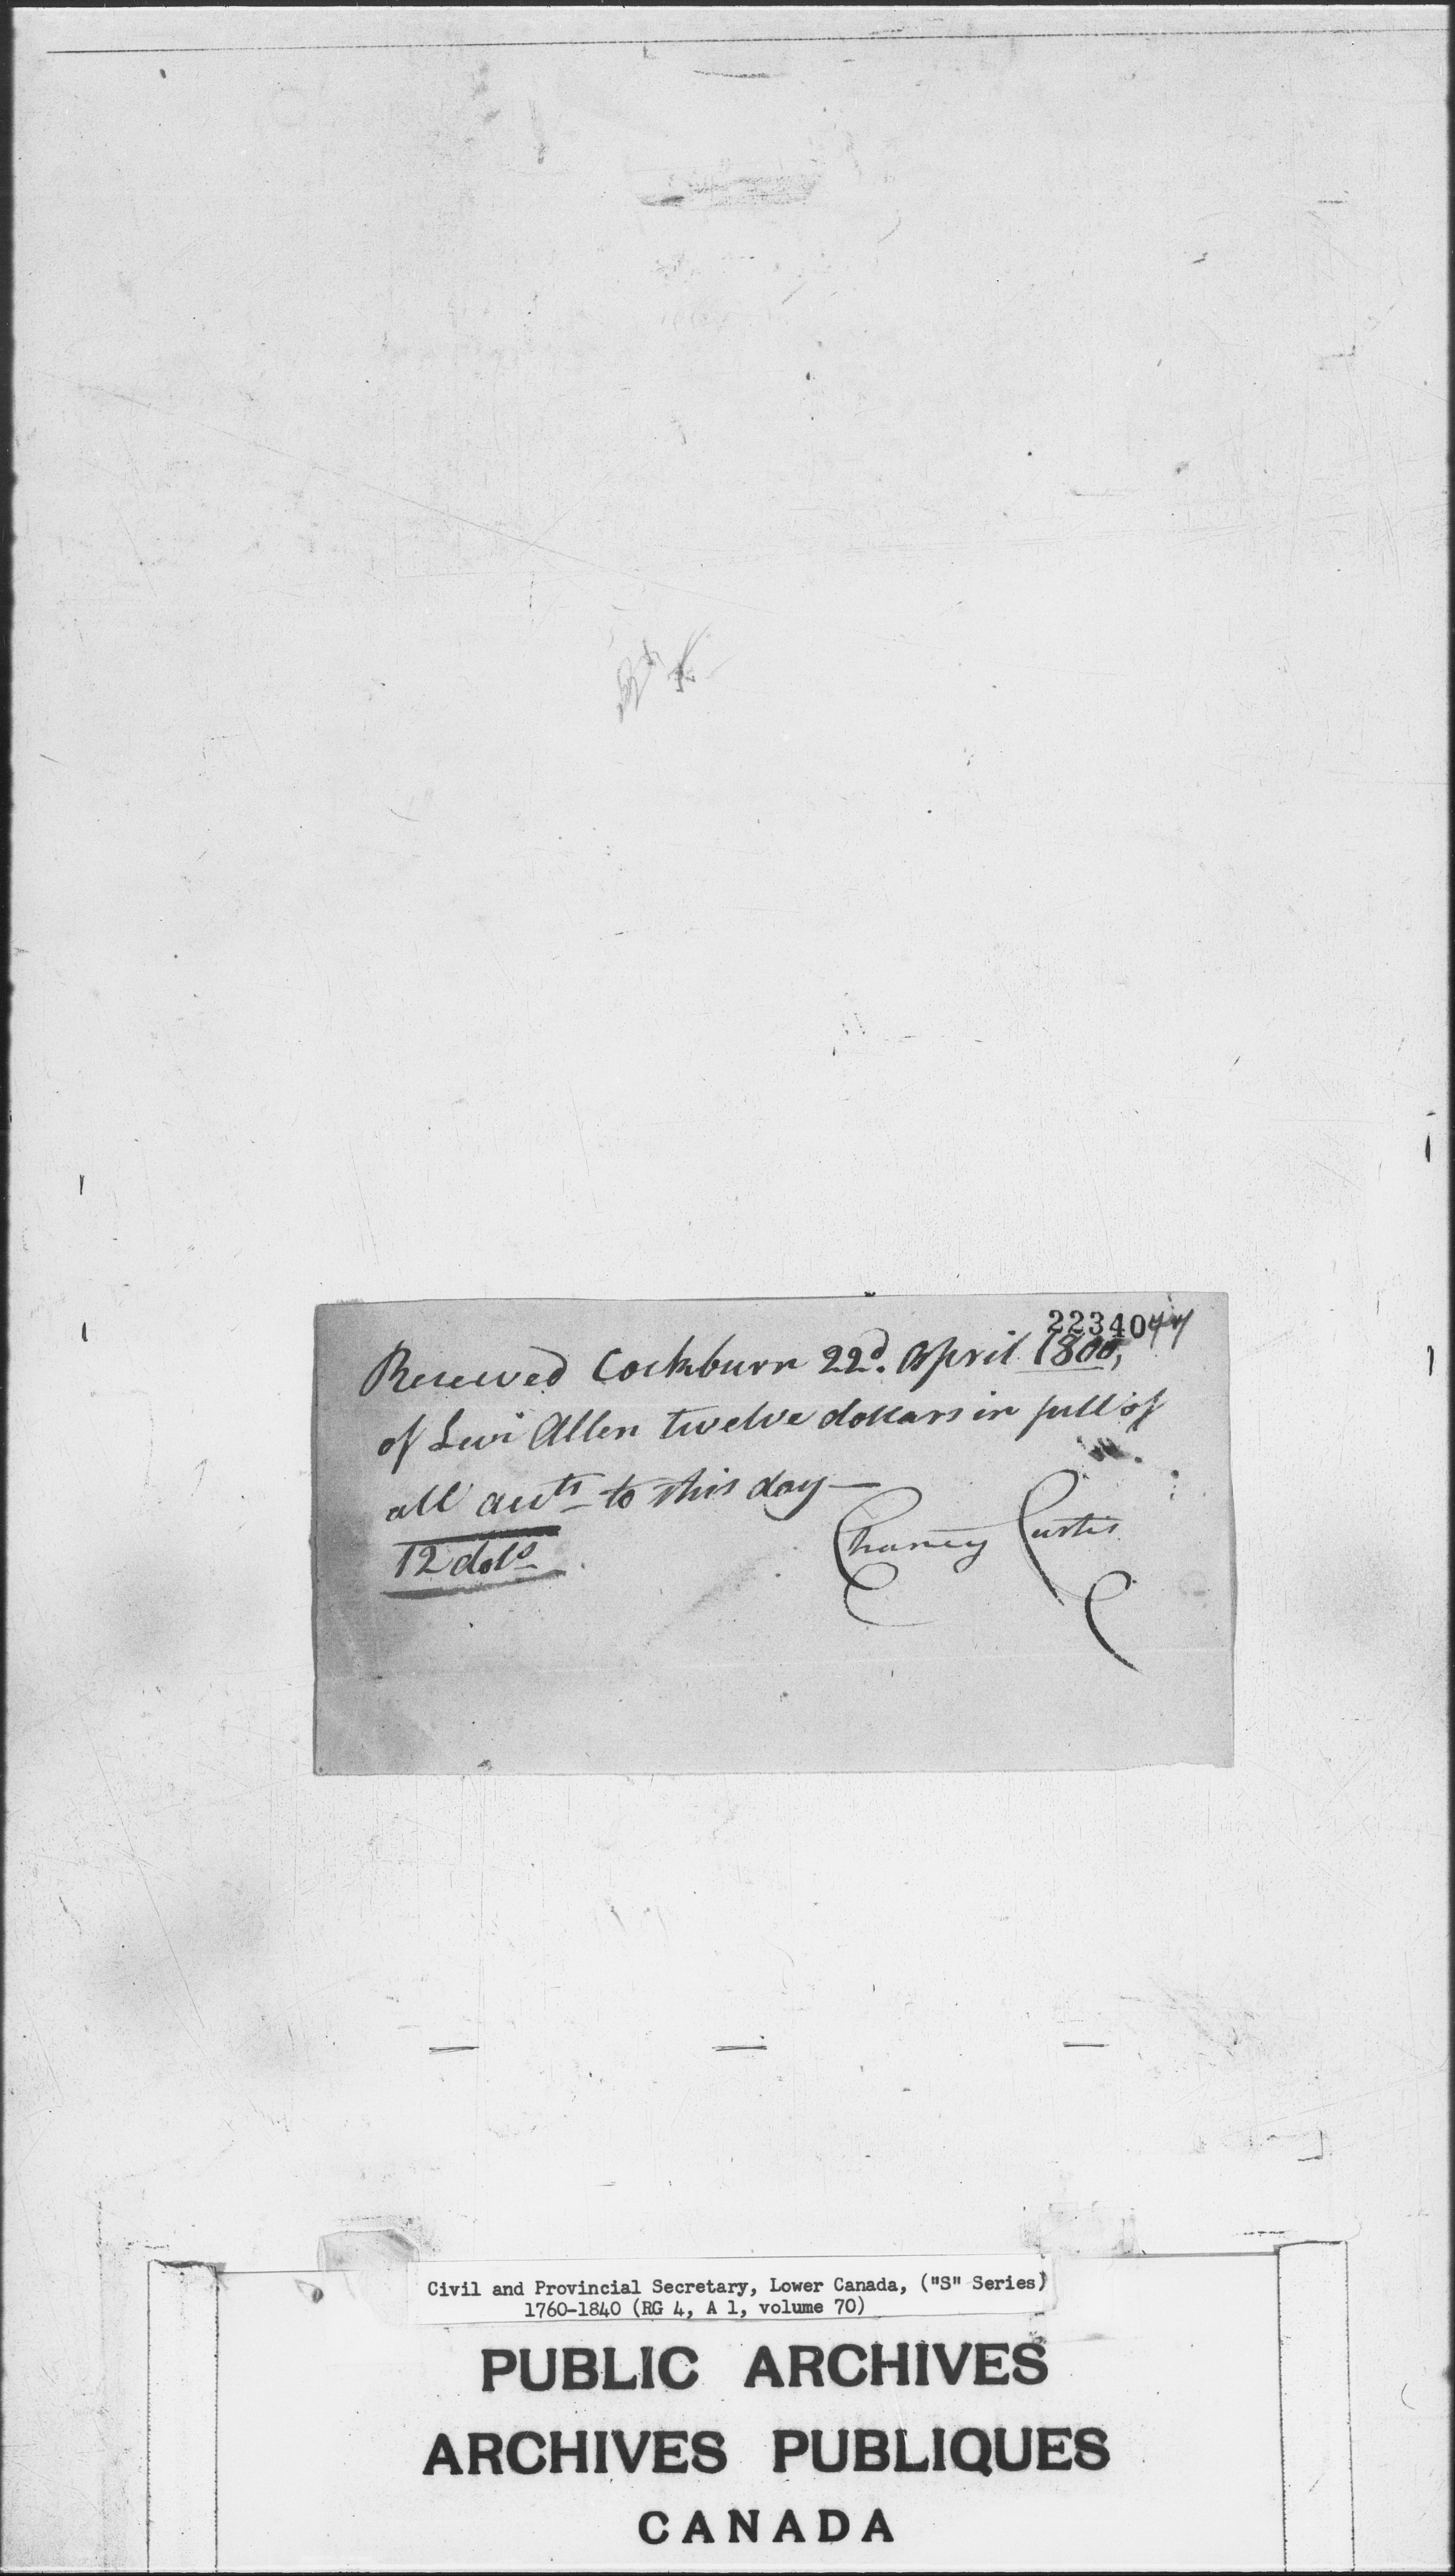 22340
Received Cockburn 22d. April 1800,
of Levi Allen twelve dollars in full of
all accts to this day—
12 dols
Chancy Curtis
Civil and Provincial Secretary, Lower Canada, ("S" Series)
1760-1840 (RG 4, A 1, volume 70)
PUBLIC ARCHIVES
ARCHIVES PUBLIQUES
CANADA